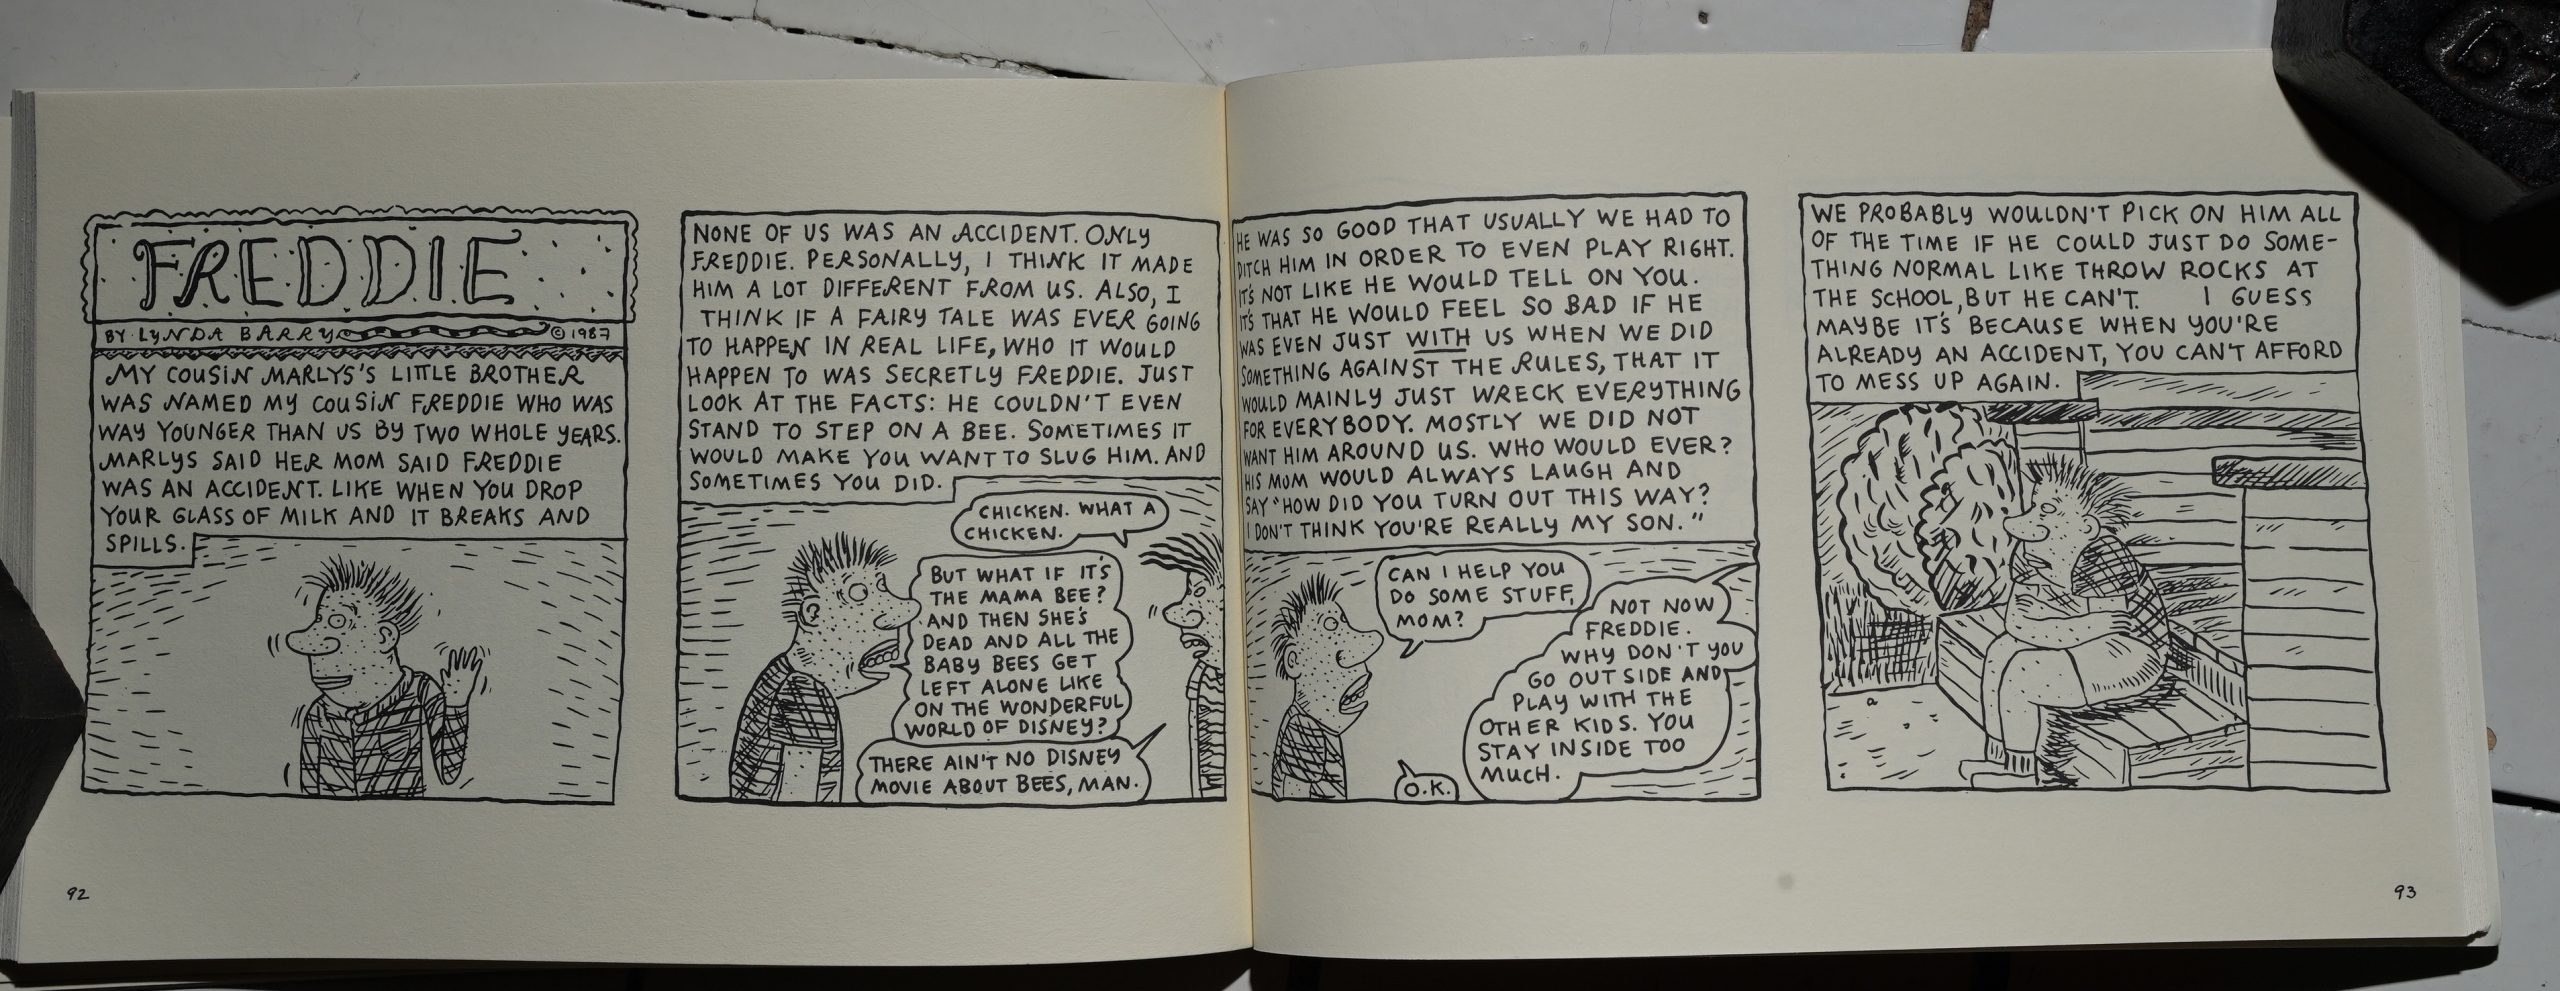 FREDDIE
BY LYNDA BARRY © 1987
MY COUSIN MARLYS'S LITTLE BROTHER
WAS NAMED MY COUSIN FREDDIE WHO WAS
WAY YOUNGER THAN US BY TWO WHOLE YEARS.
MARLYS SAID HER MOM SAID FREDDIE
WAS AN ACCIDENT. LIKE WHEN YOU DROP
YOUR GLASS OF MILK AND IT BREAKS AND
SPILLS.
NONE OF US WAS AN ACCIDENT. ONLY
FREDDIE. PERSONALLY, I THINK IT MADE
HIM A LOT DIFFERENT FROM US. ALSO, I
THINK IF A FAIRY TALE WAS EVER GOING
TO HAPPEN IN REAL LIFE, WHO IT WOULD
HAPPEN TO WAS SECRETLY FREDDIE. JUST
LOOK AT THE FACTS: HE COULDN'T EVEN
STAND TO STEP ON A BEE. SOMETIMES IT
WOULD MAKE YOU WANT TO SLUG HIM. AND
SOMETIMES YOU DID.
CHICKEN. WHAT A
CHICKEN.
BUT WHAT IF IT'S
THE MAMA BEE?
AND THEN SHE'S
DEAD AND ALL THE
BABY BEES GET
LEFT ALONE LIKE
ON THE WONDERFUL
WORLD OF DISNEY?
THERE AIN'T NO DISNEY
MOVIE ABOUT BEES, MAN.
HE WAS SO GOOD THAT USUALLY WE HAD TO
DITCH HIM IN ORDER TO EVEN PLAY RIGHT.
IT'S NOT LIKE HE WOULD TELL ON YOU.
IT'S THAT HE WOULD FEEL SO BAD IF HE
WAS EVEN JUST WITH US WHEN WE DID
SOMETHING AGAINST THE RULES, THAT IT
WOULD MAINLY JUST WRECK EVERYTHING
FOR EVERYBODY. MOSTLY WE DID NOT
WANT HIM AROUND US. WHO WOULD EVER?
HIS MOM WOULD ALWAYS LAUGH AND
SAY "HOW DID YOU TURN OUT THIS WAY?
I DON'T THINK YOU'RE REALLY MY SON."
CAN I HELP YOU
DO SOME STUFF,
MOM?
NOT NOW
FREDDIE.
WHY DON'T YOU
GO OUT SIDE AND
PLAY WITH THE
OTHER KIDS. YOU
STAY INSIDE TOO
MUCH.
O.K.
WE PROBABLY WOULDN'T PICK ON HIM ALL
OF THE TIME IF HE COULD JUST DO SOME-
THING NORMAL LIKE THROW ROCKS AT
THE SCHOOL, BUT HE CAN'T. I GUESS
MAYBE IT'S BECAUSE WHEN YOU'RE
ALREADY AN ACCIDENT, YOU CAN'T AFFORD
TO MESS UP AGAIN.
92
93